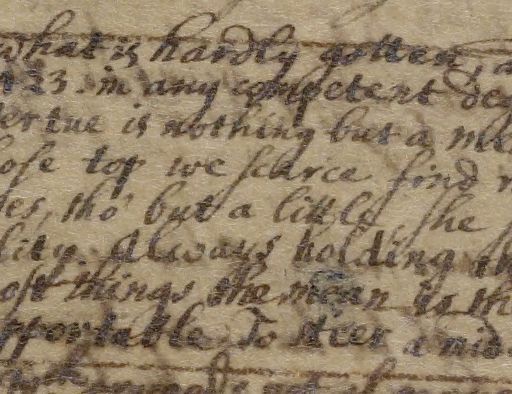 what is hardly gotten, a
123. in any competent de
vertue is nothing but a me
hose top we scarce find
des, tho' but a little she
lity. Always holding th
ost things the mean is the
pportable To steer a mid